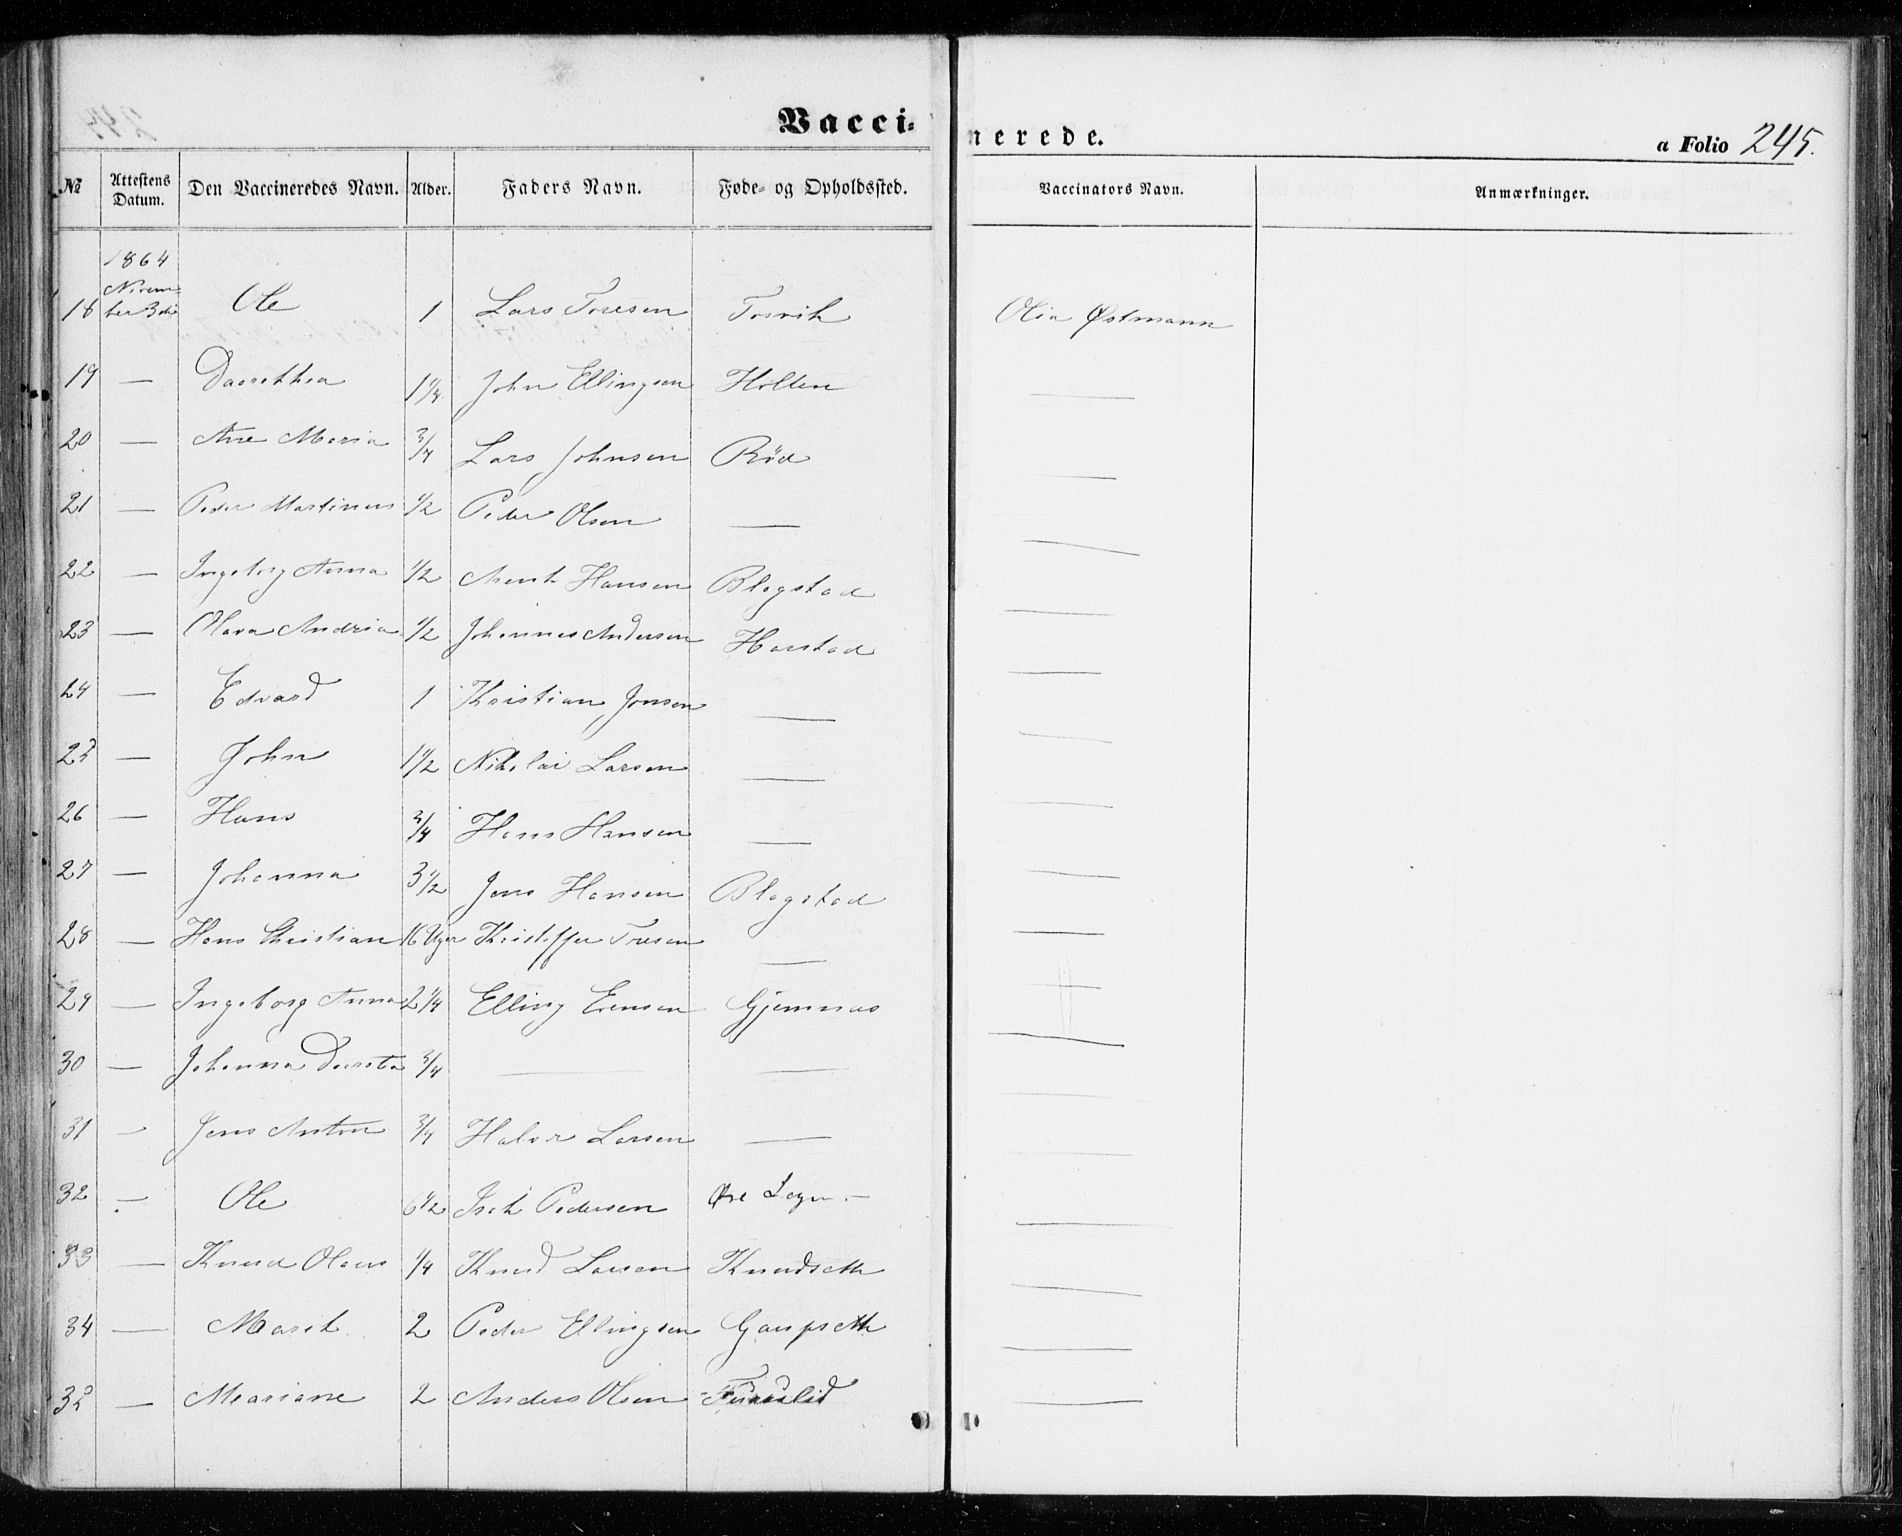 Vacci-
nerede.
a Folio 245.
№ Attestens Datum. Den Vaccineredes Navn. Alder. Faders Navn. Føde- og Opholdssted. Vaccinators Navn. Anmærkninger.
1864
Novem-
18 ber 3die Ole 1 Lars Toresen Torvik Olia Østmann
19 — Dorethea 1 1/4 John Ellingsen Holten —
20 — Ane Maria 3/4 Lars Johnsen Rød —
21 — Peder Martinus 1/2 Peder Olsen — —
22 — Ingeborg Anna 1/2 Hansen Blogstad —
23 — Olava Andria 1/2 Johannes Andersen Harstad —
24 — Edvard 1 Kristian Jonsen — —
25 — John 1 1/2 Nikolai Larsen — —
26 — Hans 3/4 Hans Hansen — —
27 — Johanna 3 1/2 Jens Hansen Blogstad —
28 — Hans Christian 16 Uger Kristoffer Toresen — —
29 — Ingeborg Anna 2 1/4 Elling Evensen Gjemnæs —
30 — Johanna 3/4 — — —
31 — Jens Anton 3/4 Halvor Larsen — —
32 — Ole 6 1/2 Isak Pedersen Øre Logn — —
33 — Knud Olaus 1/4 Knud Larsen Knudseth —
34 — Marit 2 Peder Ellingsen Gaupseth —
35 — Mariane 2 Anders Olsen Furulid —